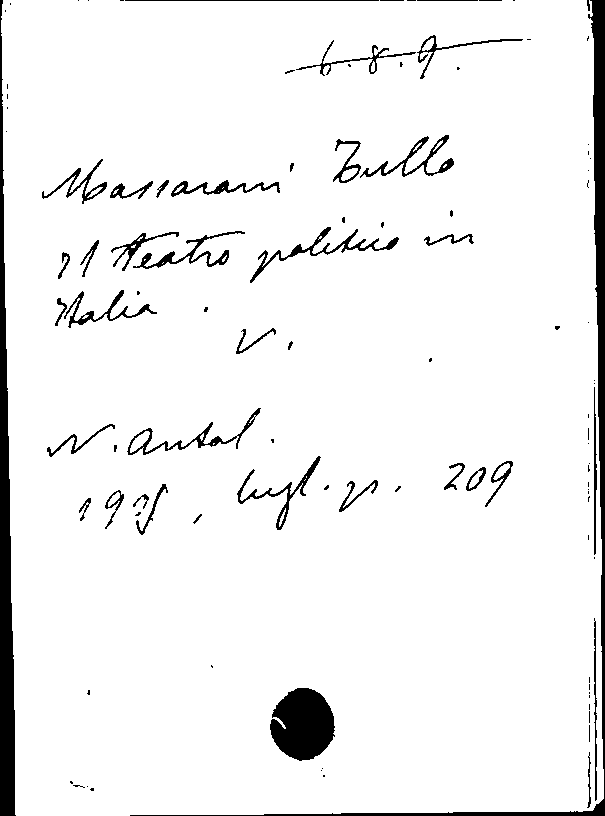 6.8.9.
Massarani Tullo
Il teatro politico in
Italia.
V.
N. Antol.
, lugl. p. 209